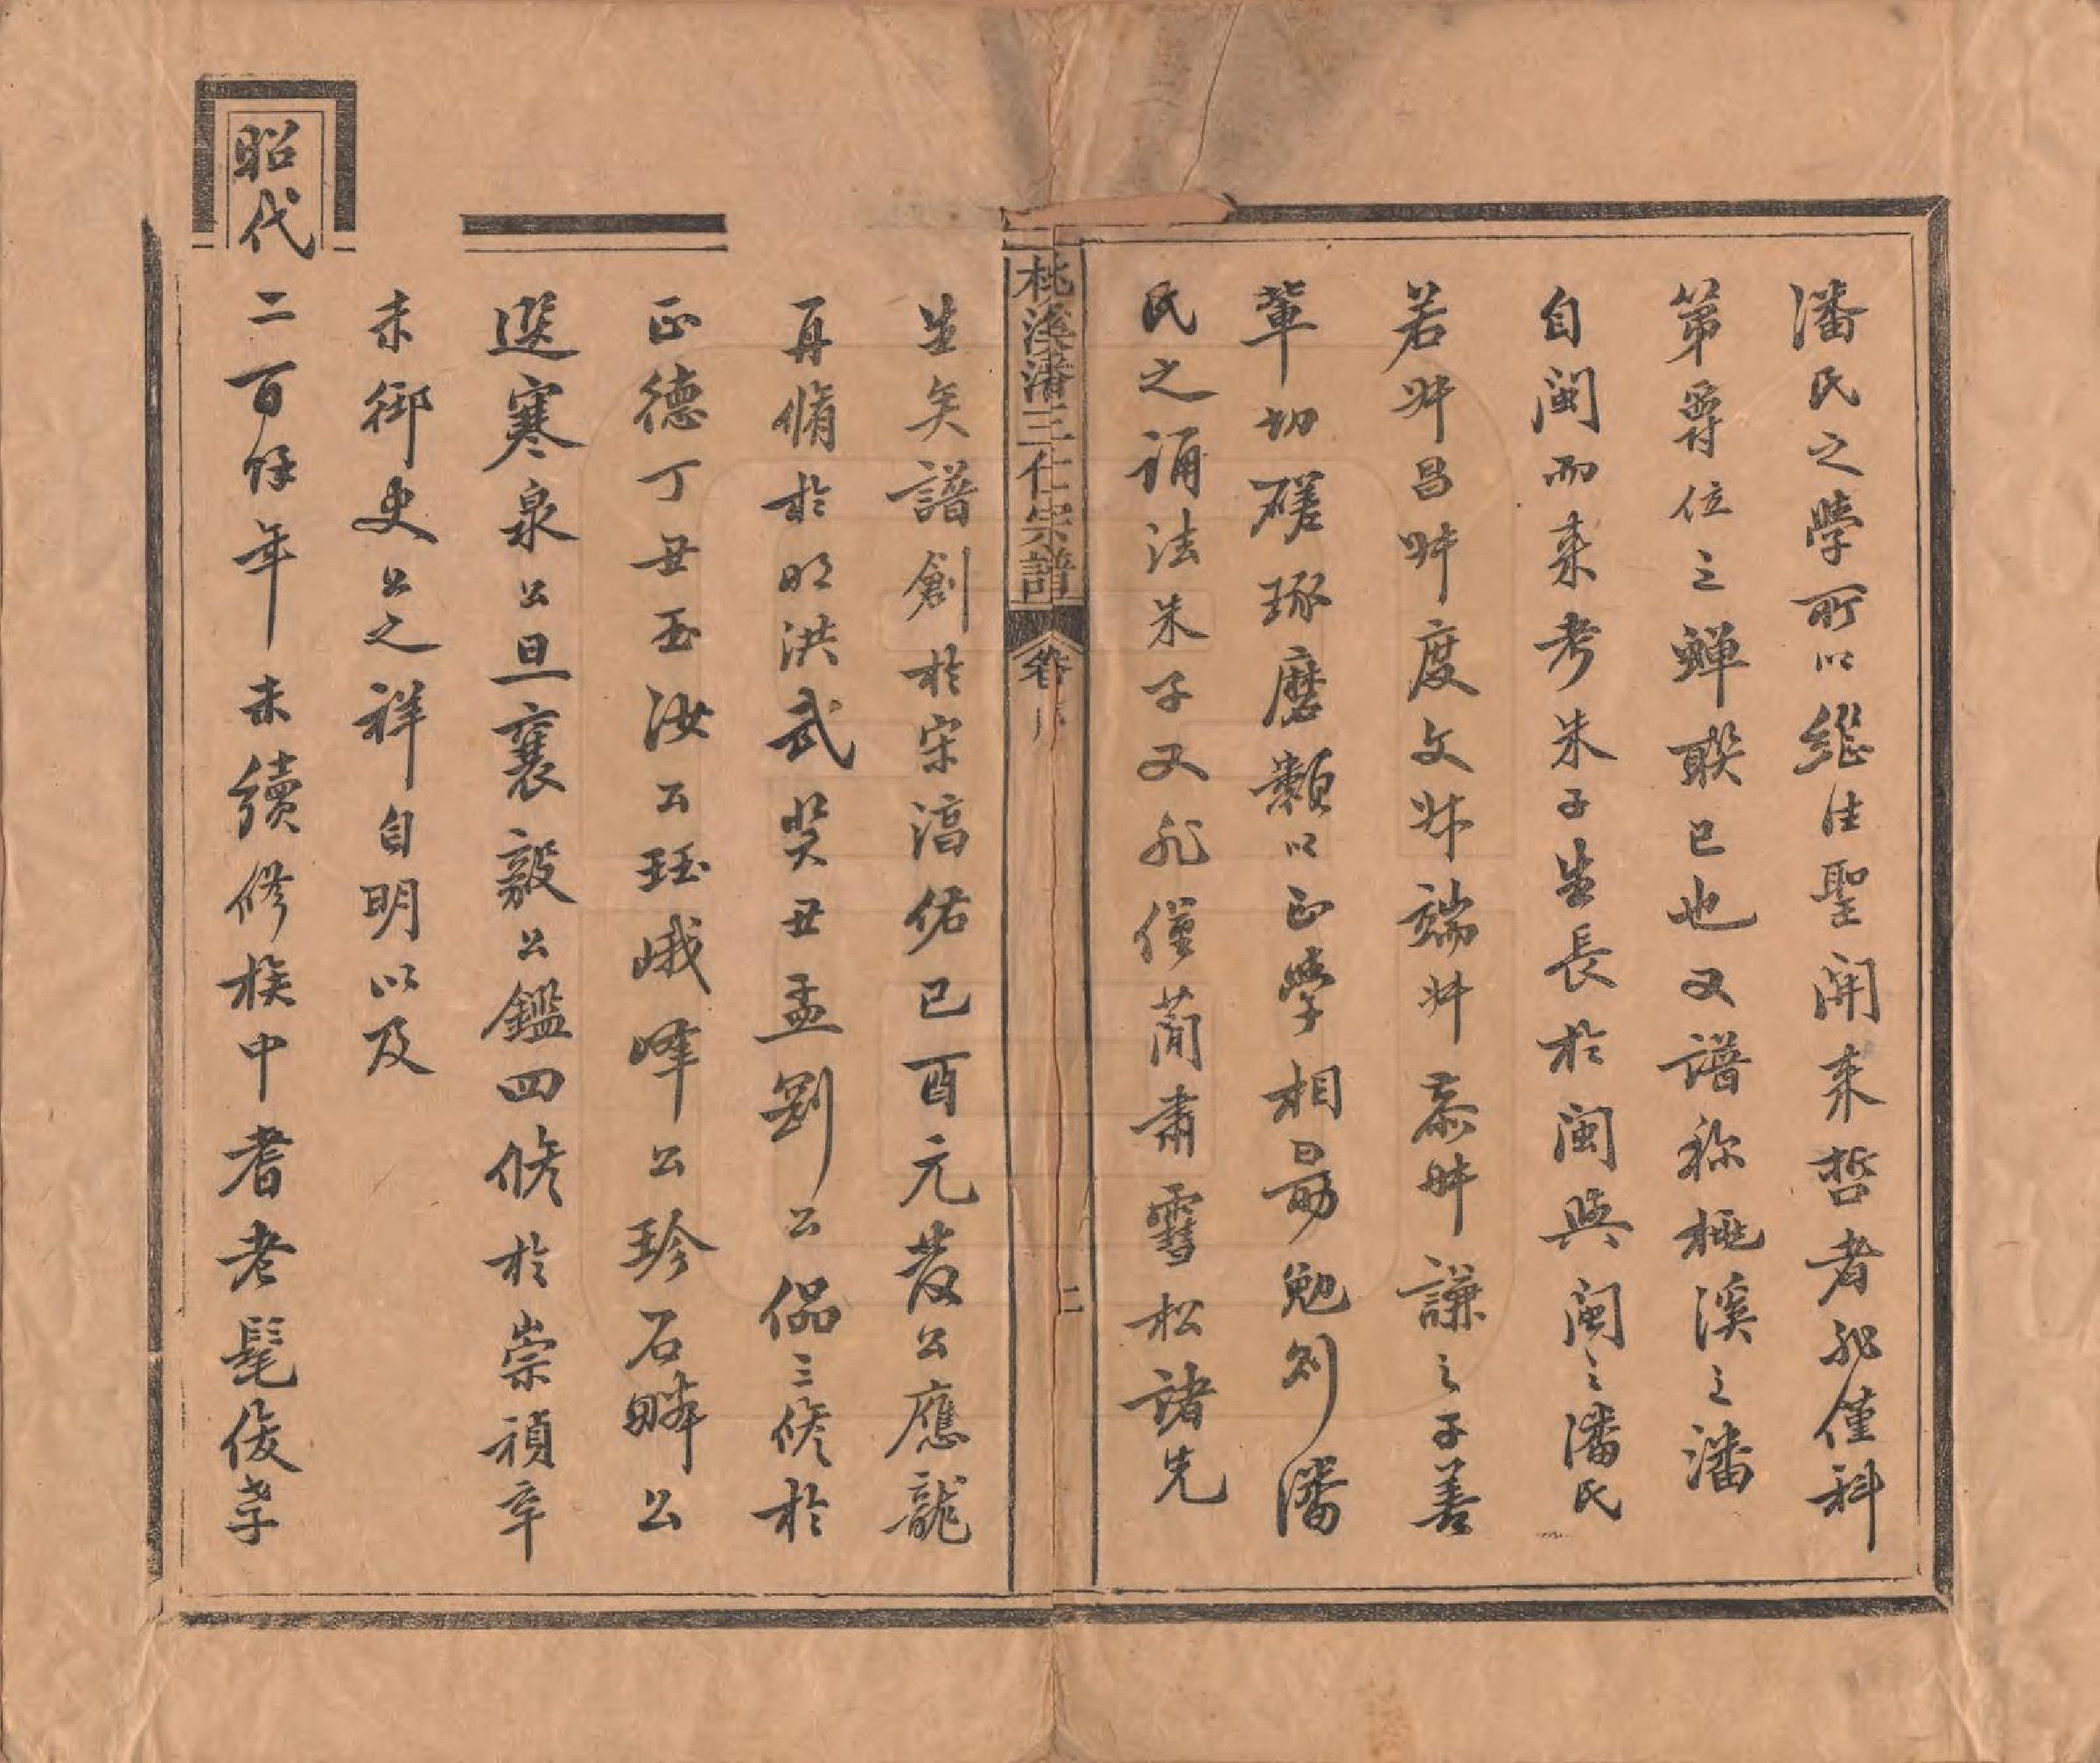 潘氏之學所以繼往聖開來哲者非僅科
第爵位之蟬聯已也又譜称桃溪之潘
自閩而来考朱子生長於閩與閩之潘氏
若叔昌叔度文叔端叔恭叔謙之子善
輩切磋琢磨類以正學相勗勉則潘
氏之誦法朱子又非僅蕳肅雪松諸先
桃溪潘三仁宗譜 卷首
二
生矣譜創於宋湻佑己酉元茂公應龍
再脩於明洪武癸丑孟劉公侃三修於
正德丁丑玉汝公珏峨峰公珍石疄公
選寒泉公旦襄毅公鑑四修於崇禎辛
未御史公之祥自明以及
昭代二百餘年未續修族中耆老髦俊孝